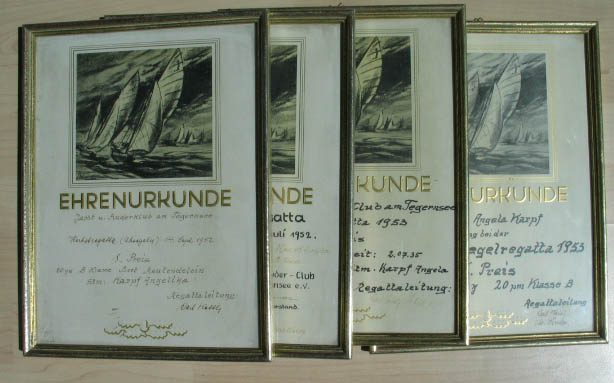 EHRENURKUNDE
Jacht u. Ruderklub am Tegernsee
Herbstregatta 14. Sept. 1952
5. Preis
20qm B Klasse Boot
Stm. Karpf Angelika
Regattaleitung:
RKUNDE
atta
Juli 1952.
der-Club
nsee e.V.
KUNDE
Club am Tegernsee
ta 1953
is
eit: 2.07.35
Stm. Karpf Angela
Regattaleitung:
URKUNDE
Angela Karpf
ng bei der
egelregatta 1953
. Preis
20 qm Klasse B
Regattaleitung